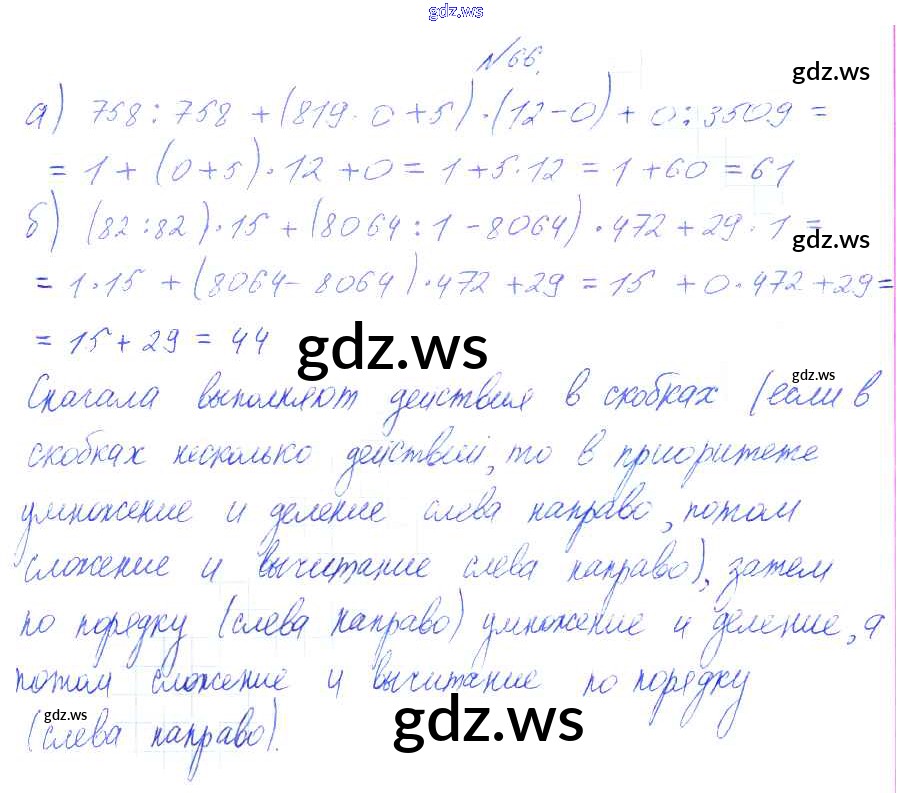 gdz.ws
№66.
gdz.ws
а) 758 : 758 + (819 · 0 + 5) · (12 - 0) + 0 : 3509 =
= 1 + (0 + 5) · 12 + 0 = 1 + 5 · 12 = 1 + 60 = 61
б) (82 : 82) · 15 + (8064 : 1 - 8064) · 472 + 29 · 1 =
gdz.ws
= 1 · 15 + (8064 - 8064) · 472 + 29 = 15 + 0 · 472 + 29 =
= 15 + 29 = 44
gdz.ws
gdz.ws
Сначала выполняют действия в скобках (если в
скобках несколько действий, то в приоритете
умножение и деление слева направо, потом
сложение и вычитание слева направо), затем
по порядку (слева направо) умножение и деление, а
потом сложение и вычитание по порядку
gdz.ws
(слева направо).
gdz.ws